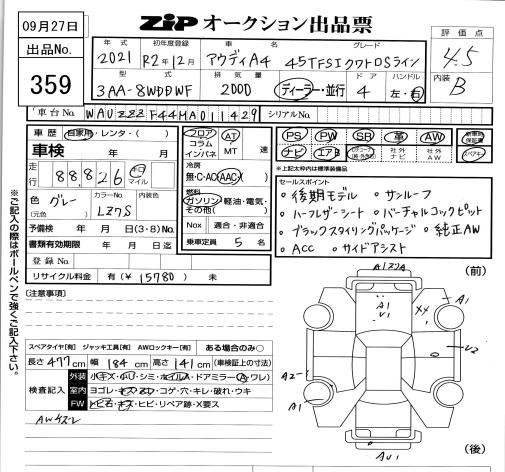 09月27日
ZIP オークション出品票
評価点
4.5
出品No.
359
年式 初年度登録 車名 グレード
2021 R2年12月 アウディA4 45TFSIクワトロSライン
内装
B
型式 排気量 ドア ハンドル
3AA-8WDDWF 2000 ディーラー・並行 4 左・右
車台No. WAUZZZF44MA011429 シリアルNo.
車歴 自家用・レンタ・( )
車検 年 月
走行 88,826 キロ マイル
色 グレー
(元色)
カラーNo. LZ7S 内装色
予備検 年 月 日(3・8)No.
書類有効期限 年 月 日迄
登録No.
リサイクル料金 有(¥15780) 未
フロア コラム インパネ AT MT 速
冷房
無・C・AC(AAC)( )
燃料
ガソリン・軽油・電気・その他( )
Nox 適合・非適合
乗車定員 5 名
PS PW SR 革 AW 新車時保証書
ナビ エアB 社外ナビ 社外AW スペアキー
※上記太枠内は標準装備品
セールスポイント
・後期モデル ・サンルーフ
・ハーフレザーシート ・バーチャルコックピット
・ブラックスタイリングパッケージ ・純正AW
・ACC ・サイドアシスト
※ご記入の際はボールペンで強くご記入下さい。
(注意事項)
スペアタイヤ[有] ジャッキ工具[有] AWロックキー[有] ある場合のみ○
長さ 477cm 幅 184cm 高さ 141cm (車検証上の寸法)
検査記入
外装 小キズ・小U・シミ・ホイルA・ドアミラー(A・ワレ)
室内 ヨゴレ・キズ・スレ・コゲ・穴・キレ・破れ・ウキ
FW トビ石・キズ・ヒビ・リペア跡・X要ス
AWキズレ
(前)
A1
U1
XX
A1
U2
A2
A1
AU1
(後)